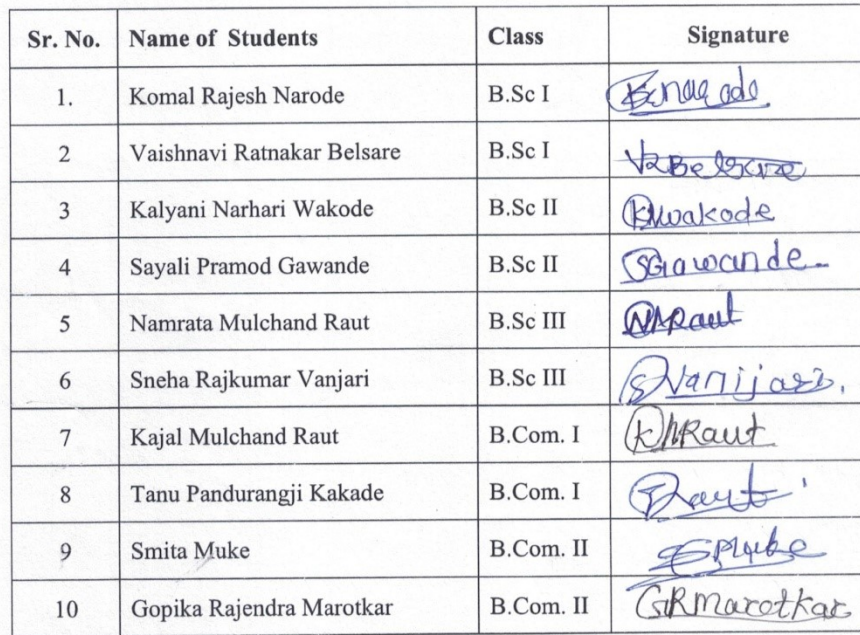 Sr. No. Name of Students Class Signature
1. Komal Rajesh Narode B.Sc I
2 Vaishnavi Ratnakar Belsare B.Sc I VRBelsare
3 Kalyani Narhari Wakode B.Sc II KNwakode
4 Sayali Pramod Gawande B.Sc II SGawande
5 Namrata Mulchand Raut B.Sc III NMRaut
6 Sneha Rajkumar Vanjari B.Sc III
7 Kajal Mulchand Raut B.Com. I KMRaut
8 Tanu Pandurangji Kakade B.Com. I
9 Smita Muke B.Com. II
10 Gopika Rajendra Marotkar B.Com. II GRMarotkar